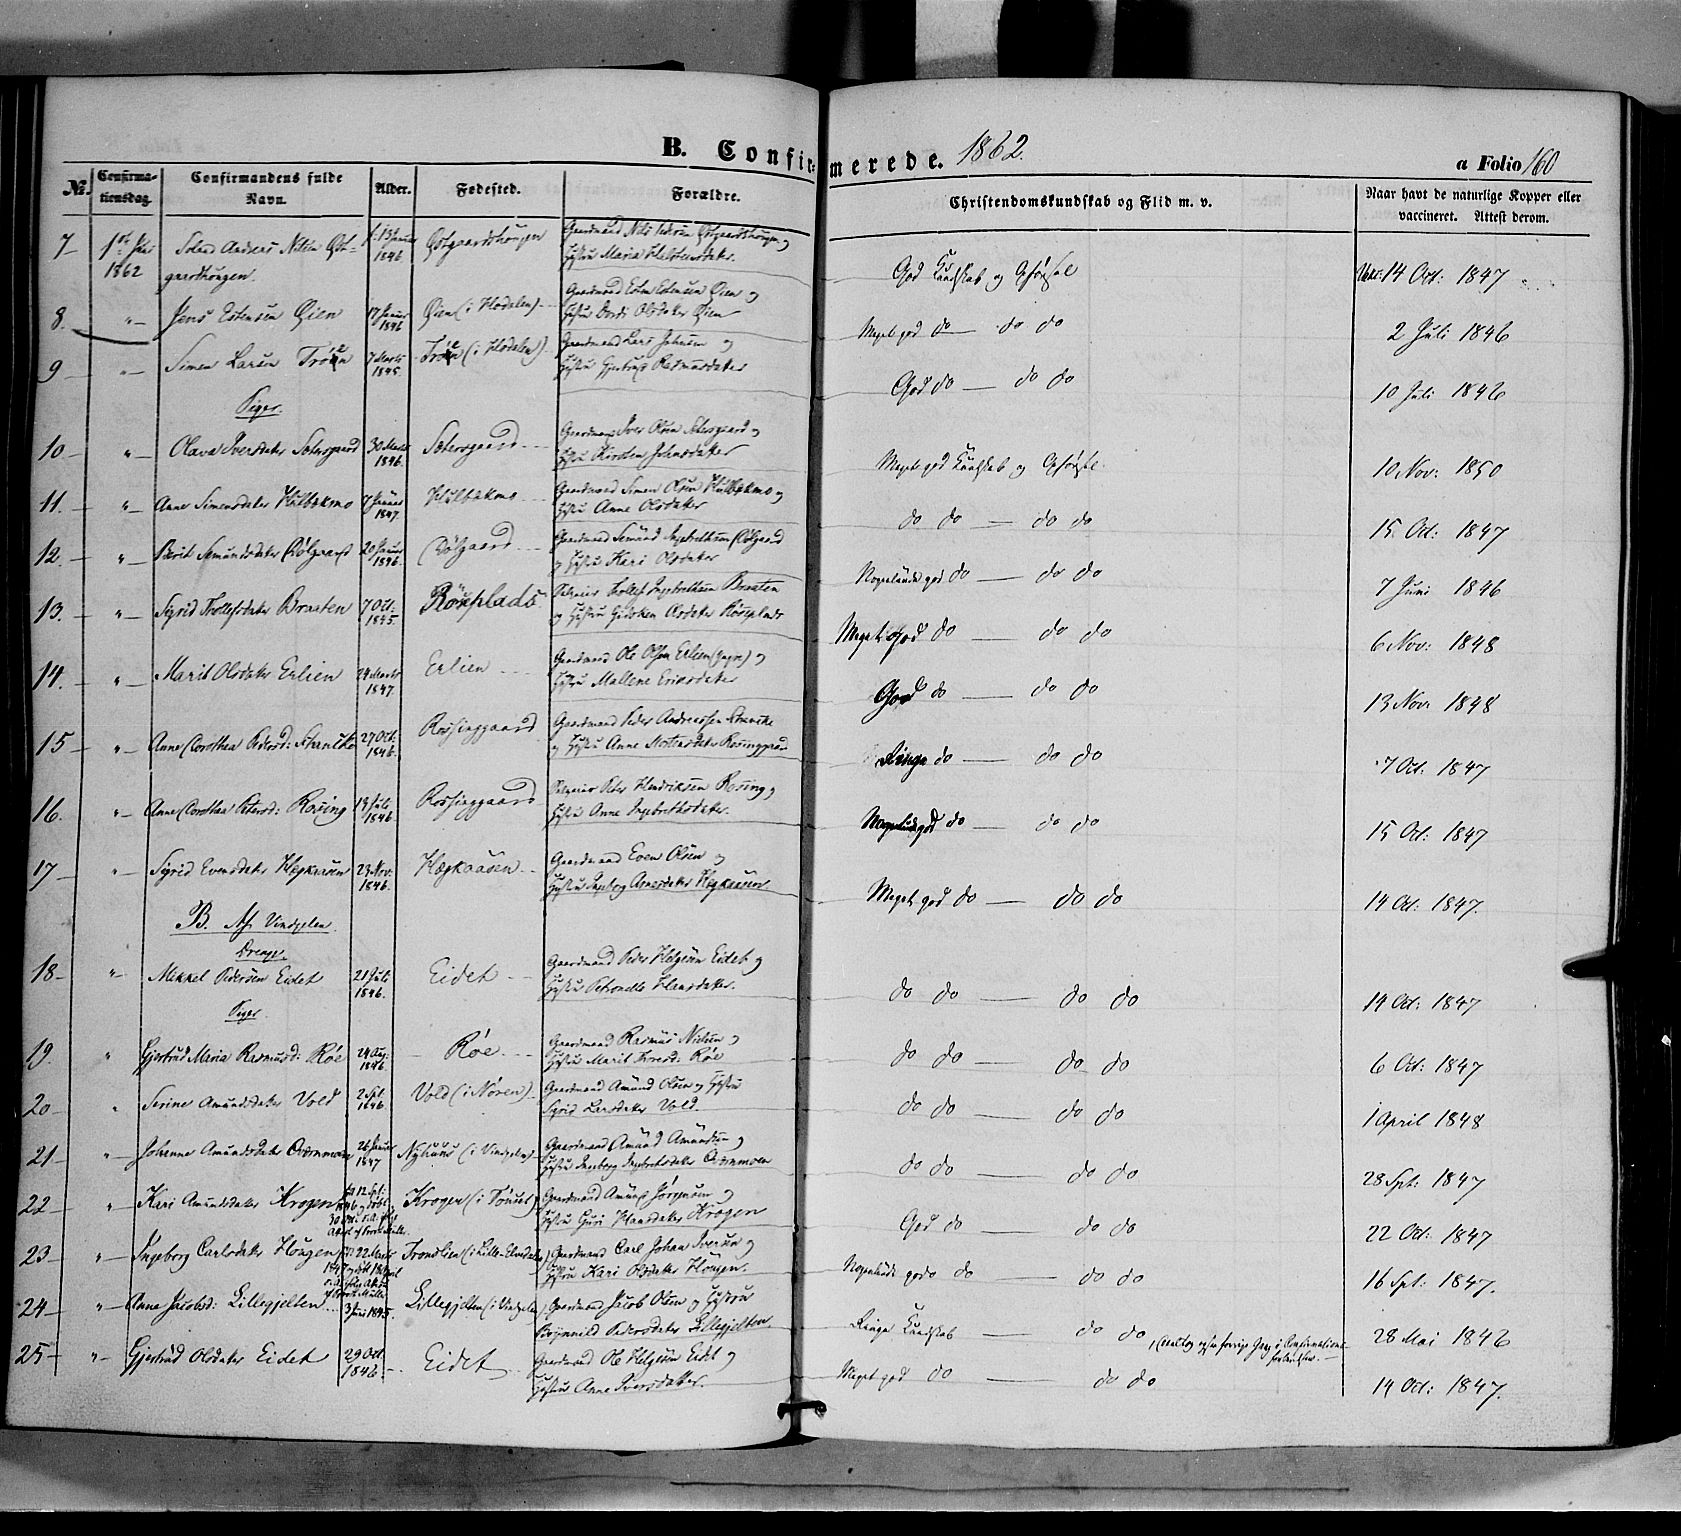 B. Confirmerede. 1862.
a Folio 160
No. Confirmationsdag. Confirmandens fulde Navn. Alder. Fødested. Forældre. Christendomskundskab og Flid m. v. Naar havt de naturlige Kopper eller vaccineret. Attest derom.
7 1ste Juli 1862 Anders Nilsen Østgaardshougen f. 13 Januar 1846 Østgaardshougen Gaardmand Nils Østgaardshougen og Hustru Maria Halstensdatter God Kundskab og Opførsel 14 Oct: 1847
8. " Jens Estensen Øien 17 Januar 1846 Øien (i Hodalen) Gaardmand Esten Estensen Øien og Hustru Dordi Olsdatter Øien Meget god do do do 2 Juli 1846
9 " Simen Larsen 7 Marts 1845. (i Hodalen) Gaardmand Lars Johnsen og Hustru Gjertrud Rasmusdatter God do do do 10 Juli 1846
Piger.
10 " Olava Iversdatter Sætersgaard 30 Marts 1846. Sætersgaard Gaardmand Iver Olsen Sætersgaard og Hustru Kirsten Johnsdatter Meget god Kundskab og Opførsel 10 Nov: 1850
11. " Anne Simensdatter Hulbækmo 7 Januar 1847. Hulbækmo Gaardmand Simen Olsen Hulbækmo og Hustru Anne Olsdatter do do do do 15 Oct: 1847
12. " Berit Semundsdatter 20 Januar 1846. Gaardmand Semund Ingebrethsen og Hustru Kari Olsdatter Nogenlunde god do do do 7 Juni 1846
13. " Sigrid Thollefsdatter Braaten 7 Oct: 1845. Røseplads Thollef Ingebrethsen Braaten og Hustru Olsdatter Røseplads Meget God do do do 6 Nov: 1848
14. " Marit Olsdatter Erlien 24 Marts 1847. Erlien Gaardmand Ole Olsen Erlien og Hustru Mallene Eriksdatter God do do do 13 Nov: 1848
15 " Anne Dorothea Pedersd: Schancke 27 Oct: 1846. Rossinggaard Gaardmand Peder Andreassen Schancke og Hustru Anne Mortensdatter Rosinggaard Ringe do do do 7 Oct: 1847
16. " Anne Dorothea Petersd: Rossing 19 Juli 1846. Rossinggaard Peter Hendriksen Rosing og Hustru Anne Ingebrethsdatter. Nogenlunde god do do do 15 Oct: 1847
17 " Sigrid Evensdatter Hegkaasen 23 Nov: 1846. Hegkaasen Gaardmand Even Olsen og Hustru Ingeborg Arnesdatter Hegkaasen Meget god do do do 14 Oct: 1847.
B. Af Vingelen
Drenge.
18 " Mikkel Pedersen Eidet 21 Juli 1846. Eidet Gaardmand Peder Helgesen Eidet og Hustru Petronelle Hansdatter. do do do do 14 Oct: 1847
Piger
19. " Gjertrud Maria Rasmusd: Røe 24 Aug: 1846. Røe Gaardmand Rasmus Nielsen og Hustru Marit Iversd: Røe do do do do 6 Oct: 1847
20 " Serine Amundsdatter Vold 2 Spt. 1846. Vold (i Nøren) Gaardmand Amund Olsen og Hustru Sigrid Larsdatter Vold. do do do do 1 April 1848
21 " Johanne Amundsdatter 26 Januar 1847 Nyhuus (i Vingelen) Gaardmand Amund Amundsen og Hustru Ingeborg Ingebretsdatter do do do do 28 Spt: 1847
22 " Kari Amundsdatter Krogen 12 Spt: 1846 Krogen (i Tønset) Gaardmand Amund Jørgensen og Hustru Guri Hansdatter Krogen God do do do 22 Oct: 1847
23 " Ingeborg Carlsdatter Hougen 22 Marts 1847 Tronslien (i Lille-Elvedalen) Gaardmand Carl Johan Iversen og Hustru Kari Olsdatter Hougen. Nogenlunde gode do do do 16 Spt: 1847.
24 " Anne Jacobsd: Lillegjelten 3 Juni 1845. Lillegjelten (i Vingelen) Gaardmand Jacob Olsen og Hustru Brynnild Pedersdatter Lillegjelten. Ringe Kundskab do do, 28 Mai 1846
25 " Gjertrud Olsdatter Eidet 29 Oct 1846. Eidet Gaardmand Ole Helgesen Eidet og Hustru Anne Iversdatter. Meget god do do do 14 Oct: 1847.